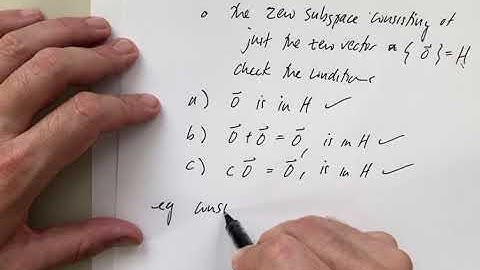 o the zero subspace consisting of
just the zero vector {0⃗} = H
check the conditions
a) 0⃗ is in H ✓
b) 0⃗+0⃗ = 0⃗, is in H ✓
c) c0⃗ = 0⃗, is in H ✓
eg cons